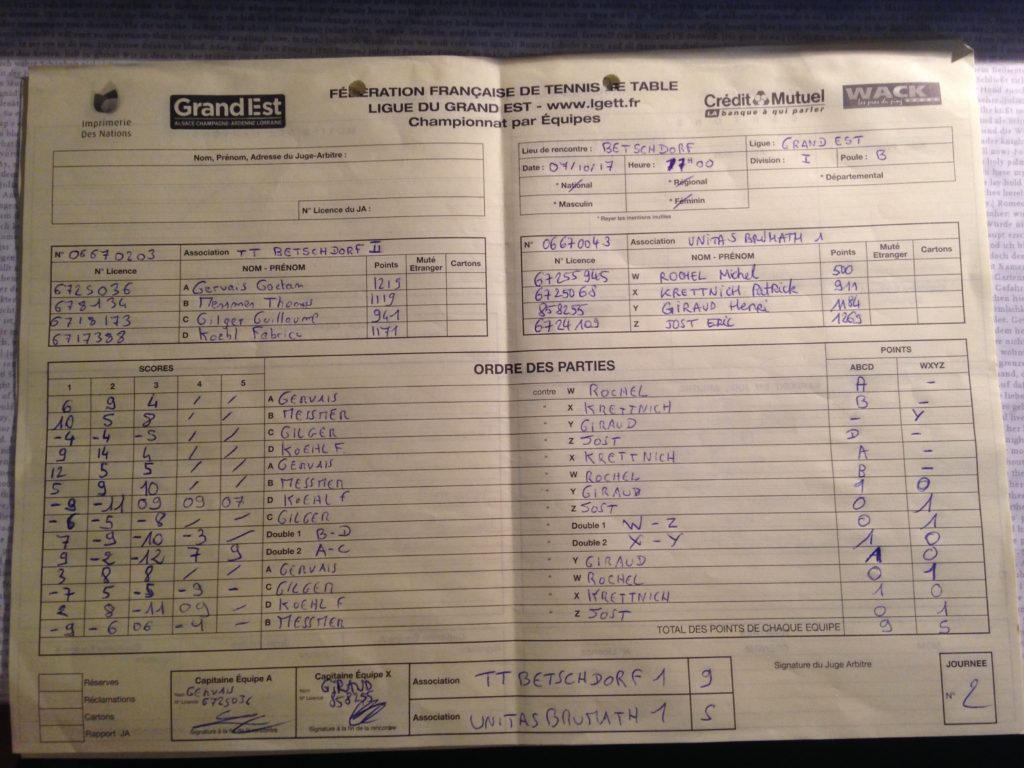 Imprimerie
Des Nations
GrandEst
ALSACE CHAMPAGNE-ARDENNE LORRAINE
FÉDÉRATION FRANÇAISE DE TENNIS DE TABLE
LIGUE DU GRAND EST - www.lgett.fr
Championnat par Équipes
Crédit Mutuel
LA banque à qui parler
WACK
Nom, Prénom, Adresse du Juge-Arbitre :
N° Licence du JA :
Lieu de rencontre : BETSCHDORF Ligue : GRAND EST
Date : 07/10/17 Heure : 17H00 Division : I Poule : B
* National * Régional * Départemental
* Masculin * Féminin
* Rayer les mentions inutiles
N° 06670203 Association TT BETSCHDORF II
N° Licence NOM - PRÉNOM Points Muté Etranger Cartons
6725036 A Gervais Gaetan 1215
678134 B Messmer Thomas 1119
6718173 C Gilger Guillaume 941
6717388 D Koehl Fabrice 1171
N° 06670043 Association UNITAS BRUMATH 1
N° Licence NOM - PRÉNOM Points Muté Etranger Cartons
67255945 W ROCHEL Michel 500
6725068 X KRETTNICH Patrick 911
858255 Y GIRAUD Henri 1184
6724109 Z JOST Eric 1269
SCORES ORDRE DES PARTIES POINTS
1 2 3 4 5 ABCD WXYZ
6 9 4 / / A GERVAIS contre W ROCHEL A -
10 5 8 / / B MESSMER " X KRETTNICH B -
-4 -4 -5 / / C GILGER " Y GIRAUD - Y
9 14 4 / / D KOEHL F " Z JOST D -
12 5 5 / / A GERVAIS " X KRETTNICH A -
5 9 10 / / B MESSMER " W ROCHEL B -
-9 -11 09 09 07 D KOEHL F " Y GIRAUD 1 0
-6 -5 -8 / / C GILGER " Z JOST 0 1
7 -9 -10 -3 / Double 1 B-D " Double 1 W-Z 0 1
9 -2 -12 7 9 Double 2 A-C " Double 2 X-Y 1 0
3 8 8 / / A GERVAIS " Y GIRAUD A 0
-7 5 -5 -9 - C GILGER " W ROCHEL 0 1
2 8 -11 09 - D KOEHL F " X KRETTNICH 1 0
-9 -6 06 -4 - B MESSMER " Z JOST 0 1
TOTAL DES POINTS DE CHAQUE EQUIPE 9 5
Réserves
Réclamations
Cartons
Rapport JA
Capitaine Équipe A
Nom GERVAIS
N° Licence 6725036
Signature à la fin de la rencontre
Capitaine Équipe X
Nom GIRAUD
N° Licence 858255
Signature à la fin de la rencontre
Association TT BETSCHDORF 1 9
Association UNITAS BRUMATH 1 5
Signature du Juge Arbitre
JOURNEE
N° 2